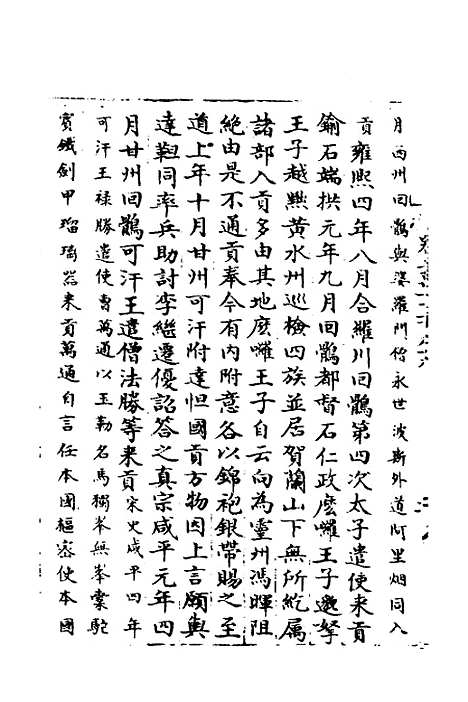 月西州回鶻與婆羅門僧永世波斯外道阿里烟同入
貢雍熙四年八月合羅川回鶻第四次太子遣使来貢
鍮石端拱元年九月回鶻都督石仁政麽囉王子邈拏
王子越黜黄水州巡檢四族並居賀蘭山下無所綂属
諸部入貢多由其地麽囉王子自云向為靈州馮暉阻
絶由是不通貢奉今有内附意各以錦袍銀帶賜之至
道上年十月甘州可汗附達怛國貢方物因上言願與
達靼同率兵助討李繼遷優詔答之真宗咸平元年四
月甘州回鶻可汗王遣僧法勝等来貢宋史咸平四年
可汗王禄勝遣使曹萬通以玉勒名馬獨峯無峯橐駝
賓鐵劍甲琉璃器来貢萬通自言任本國樞密使本國